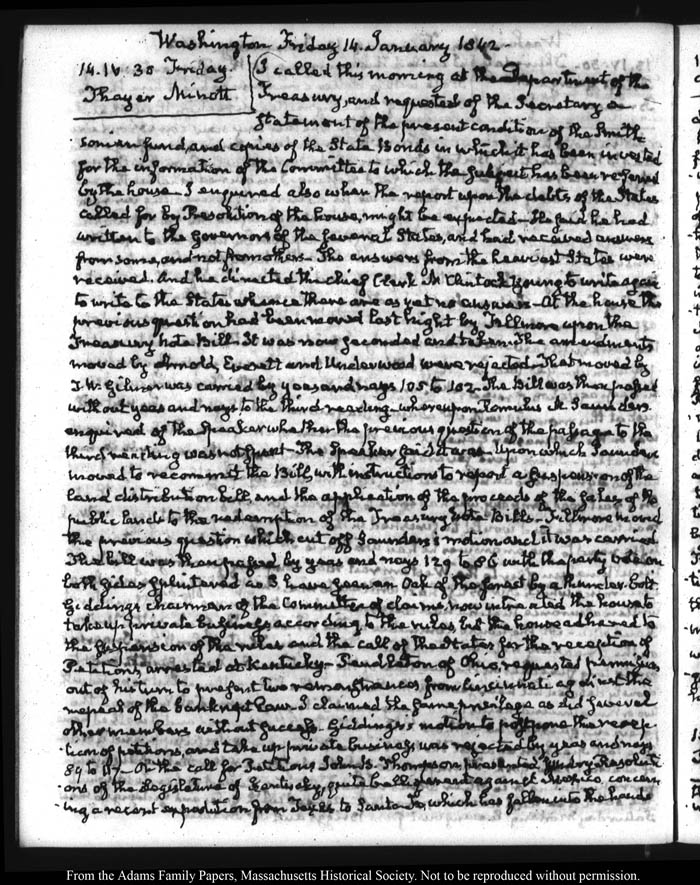 Washington Friday 14. January 1842.
14. IV: 30 Friday.
Thayer Minott
I called this morning at the Department of the
Treasury, and requested of the Secretary a
statement of the present condition of the Smith-
sonian fund, and copies of the State Bonds in which it has been invested
for the information of the Committee to which the subject has been referred
by the house. I enquired also when the report upon the debts of the States
called for by Resolution of the house, might be expected. He said he had
written to the Governors of the several States, and had received answers
from some, and not from others. The answers from the heaviest States were
received. And he directed the chief Clerk McClintock Young to write again
to write to the States whence there are as yet no answers. At the house the
previous question had been moved last night by Fillmore upon the
Treasury Note Bill. It was now seconded and taken. The amendments
moved by Arnold, Everett and Underwood were rejected. That moved by
T. W. Gilmer was carried by yeas and nays 105 to 102. The Bill was then passed
without yeas and nays to the third reading. whereupon Romulus M. Saunders
enquired of the Speaker whether the previous question of the passage to the
third reading was not spent. The Speaker said it was. Upon which Saunders
moved to recommit the Bill, with instructions to report a suspension of the
land distribution bill, and the application of the proceeds of the sales of the
public lands to the redemption of the Treasury Note Bills. Fillmore moved
the previous question which cut off Saunders's motion and it was carried
The bill was then passed by yeas and nays 129 to 86 with the party vote on
both sides splintered as I have seen an Oak of the forest by a thunder-bolt
Giddings chairman of the Committee of claims, now intreated the house to
take up private business according to the rules but the house adhered to
the suspension of the rules and the call of the States for the reception of
Petitions, arrested at Kentucky. Pendleton of Ohio, requested permission
out of his turn to present two remonstrances from Cincinnati against the
repeal of the bankrupt Law. I claimed the same privilege as did several
other members without success. Giddings's motion to postpone the recep-
tion of petitions, and take up private business was rejected by yeas and nays
89 to 117. On the call for Petitions John B. Thompson presented sundry Resoluti-
ons of the Legislature of Kentucky, quite belligerent against Mexico, concern-
ing a recent expedition from Texas to Santa-Fe, which has fallen into the hands
From the Adams Family Papers, Massachusetts Historical Society. Not to be reproduced without permission.